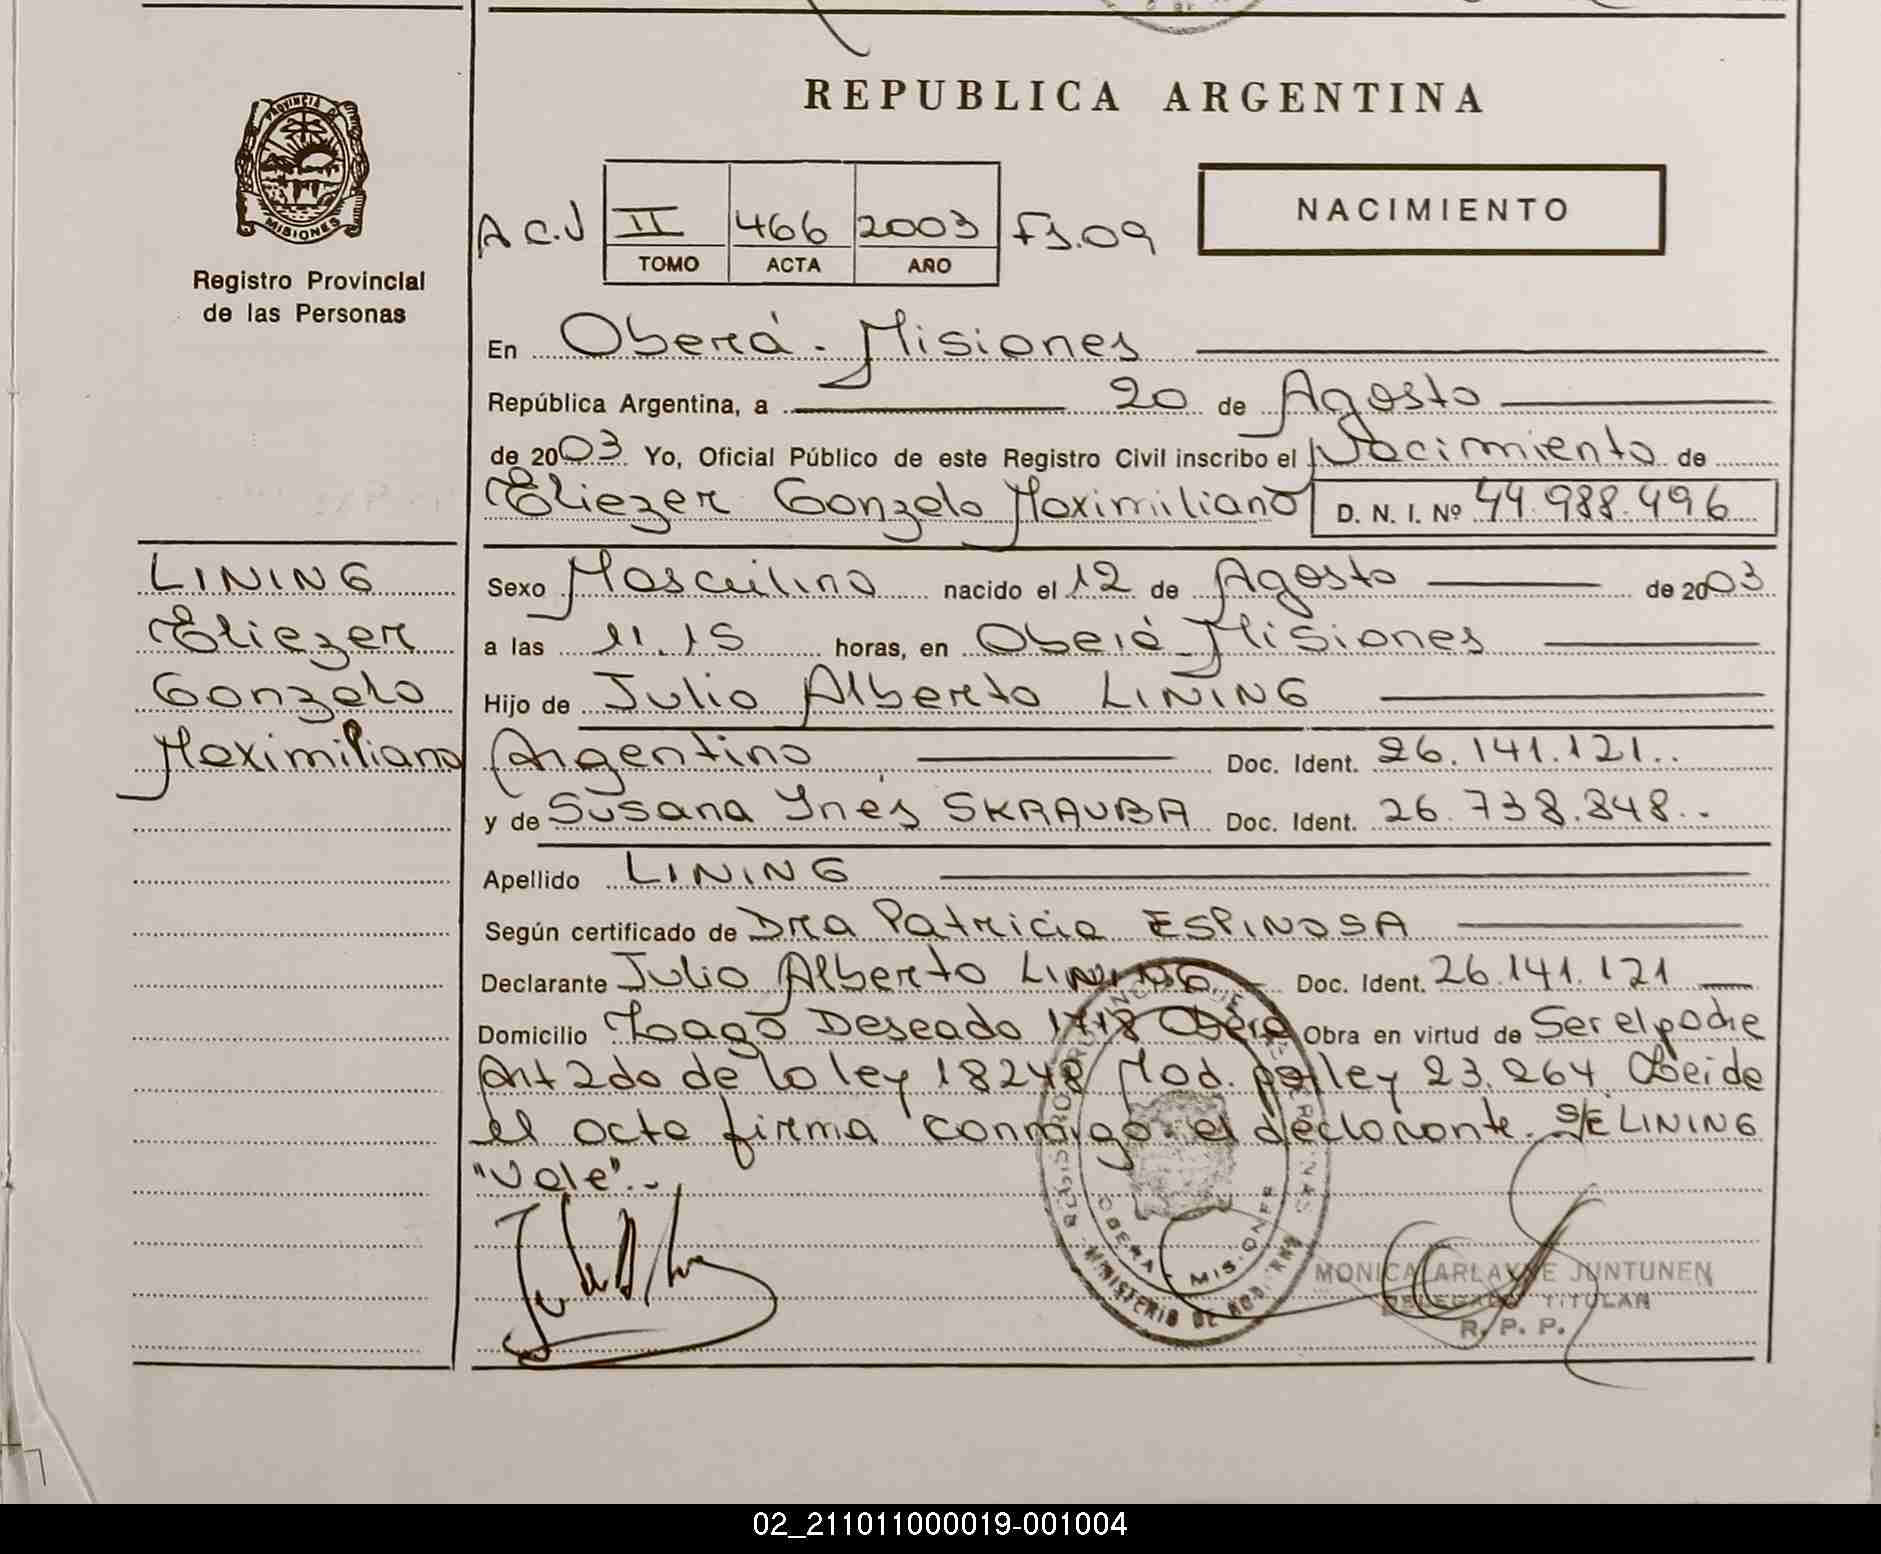 REPUBLICA ARGENTINA
PROVINCIA DE
MISIONES
Registro Provincial
de las Personas
A C.J II 466 2003 Fs.09
TOMO ACTA AÑO
NACIMIENTO
En Oberá - Misiones
República Argentina, a 20 de Agosto
de 2003 Yo, Oficial Público de este Registro Civil inscribo el Nacimiento de
Eliezer Gonzalo Maximiliano D. N. I. Nº 44.988.496
LINING
Eliezer
Gonzalo
Maximiliano
Sexo Masculino nacido el 12 de Agosto de 2003
a las 11.15 horas, en Oberá - Misiones
Hijo de Julio Alberto LINING
Argentino Doc. Ident. 26.141.121..
y de Susana Ynés SKRAUBA Doc. Ident. 26.738.848..
Apellido LINING
Según certificado de Dra Patricia ESPINOSA
Declarante Julio Alberto LINING Doc. Ident. 26.141.121
Domicilio Lago Deseado 1718 Oberá Obra en virtud de Ser el padre
Art 2do de la ley 18248 Mod. por ley 23.264 Leida
el acta firma conmigo el declarante. S/E LINING
"Vale"..
OBERA - MISIONES
MINISTERIO DE GOBIERNO
MONICA ARLAYNE JUNTUNEN
DELEGADO TITULAR
R. P. P.
02_211011000019-001004